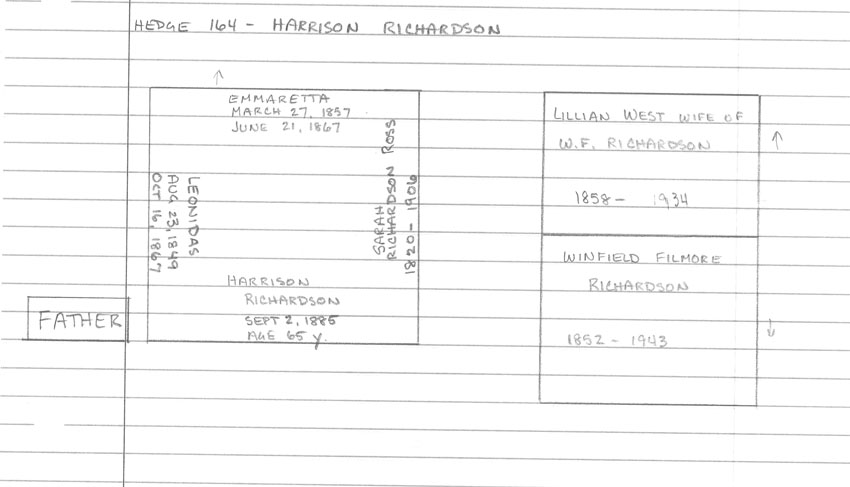 HEDGE 164 - HARRISON RICHARDSON
EMMARETTA
MARCH 27, 1857
JUNE 21, 1867
LEONIDAS
AUG 23, 1849
OCT 16, 1867
SARAH
RICHARDSON ROSS
1820 - 1906
HARRISON
RICHARDSON
SEPT 2, 1885
AGE 65 y.
FATHER
LILLIAN WEST WIFE OF
W.F. RICHARDSON
1858 - 1934
WINFIELD FILMORE
RICHARDSON
1852 - 1943